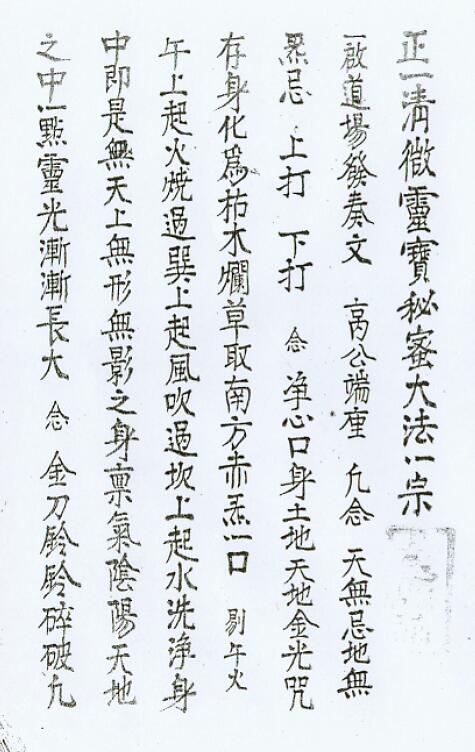 正一清微靈寶秘蜜大法一宗
一啟道場發奏文 高公端座 凢念 天無忌地無
炁忌 上打 下打 念 净心口身土地天地金光咒
存身化爲柿木爛草取南方赤炁一口 剔午火
午上起火燒過巽上起風吹過坎上起水洗淨身
中即是無天上無形無影之身禀氣陰陽天地
之中一點靈光漸漸長大 念 金刀鈴鈴碎破凢